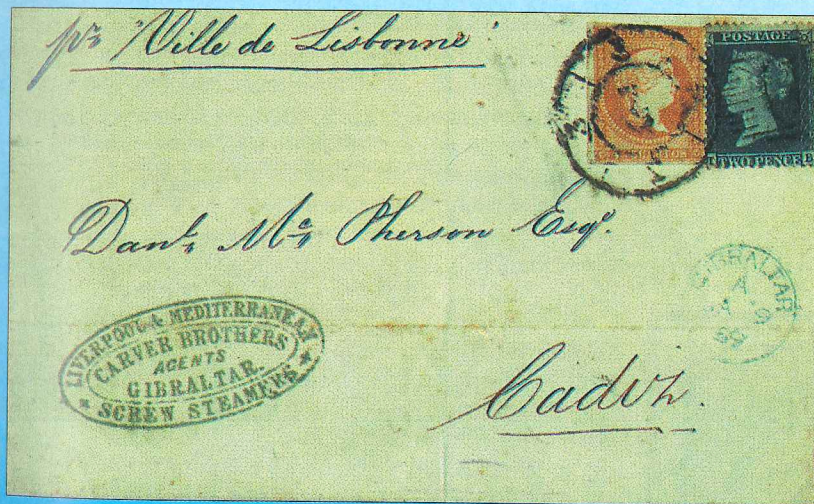 pr "Ville de Lisbonne"
POSTAGE
TWO PENCE
Danl. Mc. Pherson Esqr.
GIBRALTAR
A
9
59
LIVERPOOL & MEDITERRANEAN
CARVER BROTHERS
AGENTS
GIBRALTAR.
SCREW STEAMERS
Cadiz.